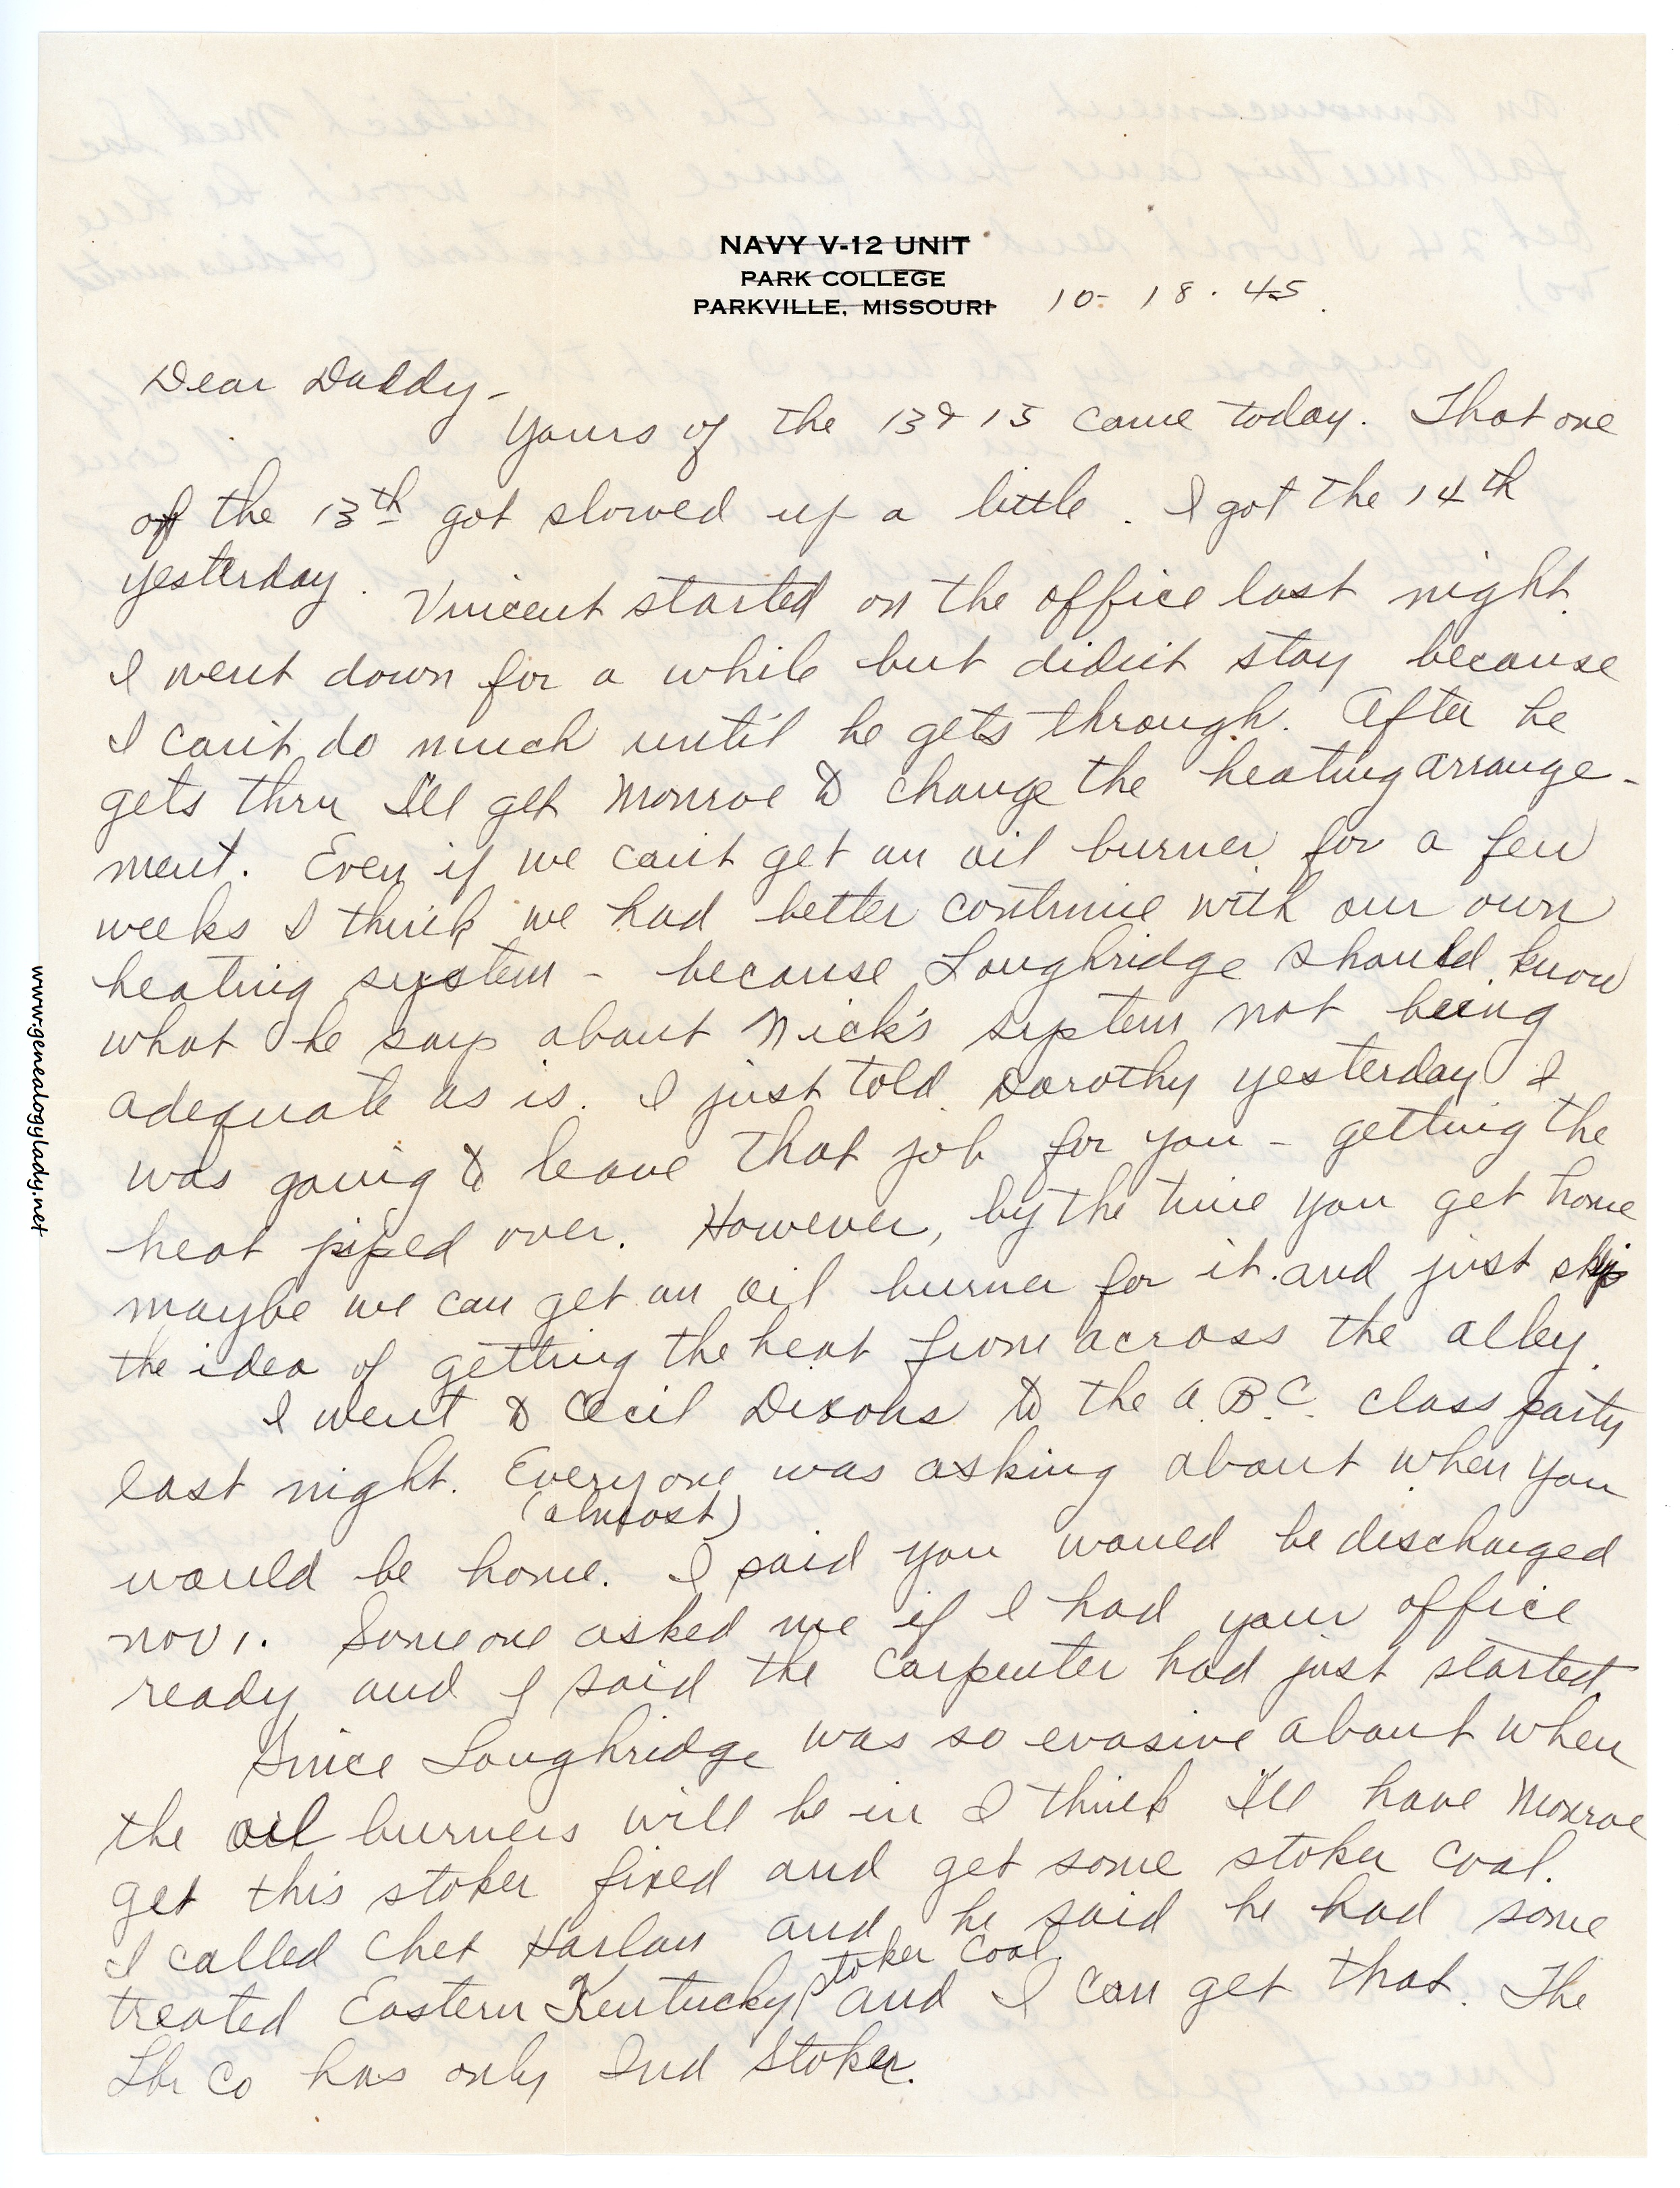 NAVY V-12 UNIT
PARK COLLEGE
PARKVILLE, MISSOURI
10-18-45.
Dear Daddy-
Yours of the 13 & 15 came today. That one
of the 13th got slowed up a little. I got the 14th
yesterday. Vincent started on the office last night.
I went down for a while but didn't stay because
I can't do much until he gets through. After he
gets thru I'll get Monroe to change the heating arrange-
ment. Even if we can't get an oil burner for a few
weeks I think we had better continue with our own
heating system - because Loughridge should know
what he says about Nick's system not being
adequate as is. I just told Dorothy yesterday I
was going to leave that job for you - getting the
heat piped over. However, by the time you get home
maybe we can get an oil burner for it and just skip
the idea of getting the heat from across the alley.
I went to Cecil Dixons to the A.B.C. class party
last night. Everyone was asking about when you
(almost)
would be home. I said you would be discharged
Nov 1. Someone asked me if I had your office
ready and I said the carpenter had just started.
Since Loughridge was so evasive about when
the oil burners will be in I think I'll have Monroe
get this stoker fixed and get some stoker coal.
I called Chet Harlan and he said he had some
stoker coal
treated Eastern Kentucky and I can get that. The
Lbr Co has only Ind Stoker.
www.genealogylady.net